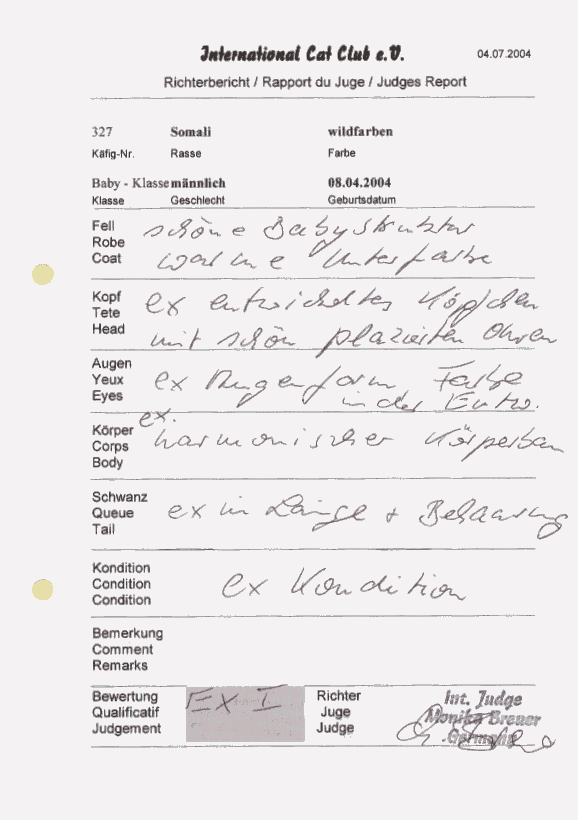 International Cat Club e.V. 04.07.2004
Richterbericht / Rapport du Juge / Judges Report
327 Somali wildfarben
Käfig-Nr. Rasse Farbe
Baby - Klasse männlich 08.04.2004
Klasse Geschlecht Geburtsdatum
Fell schöne Babystruktur
Robe
Coat warme Unterfarbe
Kopf ex entwickeltes Köpfchen
Tete
Head mit schön plazierten Ohren
Augen
Yeux ex Augenform Farbe
Eyes in der Entw.
ex.
Körper harmonischer Körperbau
Corps
Body
Schwanz
Queue ex in Länge + Behaarung
Tail
Kondition
Condition ex Kondition
Condition
Bemerkung
Comment
Remarks
Bewertung EX I Richter Int. Judge
Qualificatif Juge Monika Breuer
Judgement Judge Germany